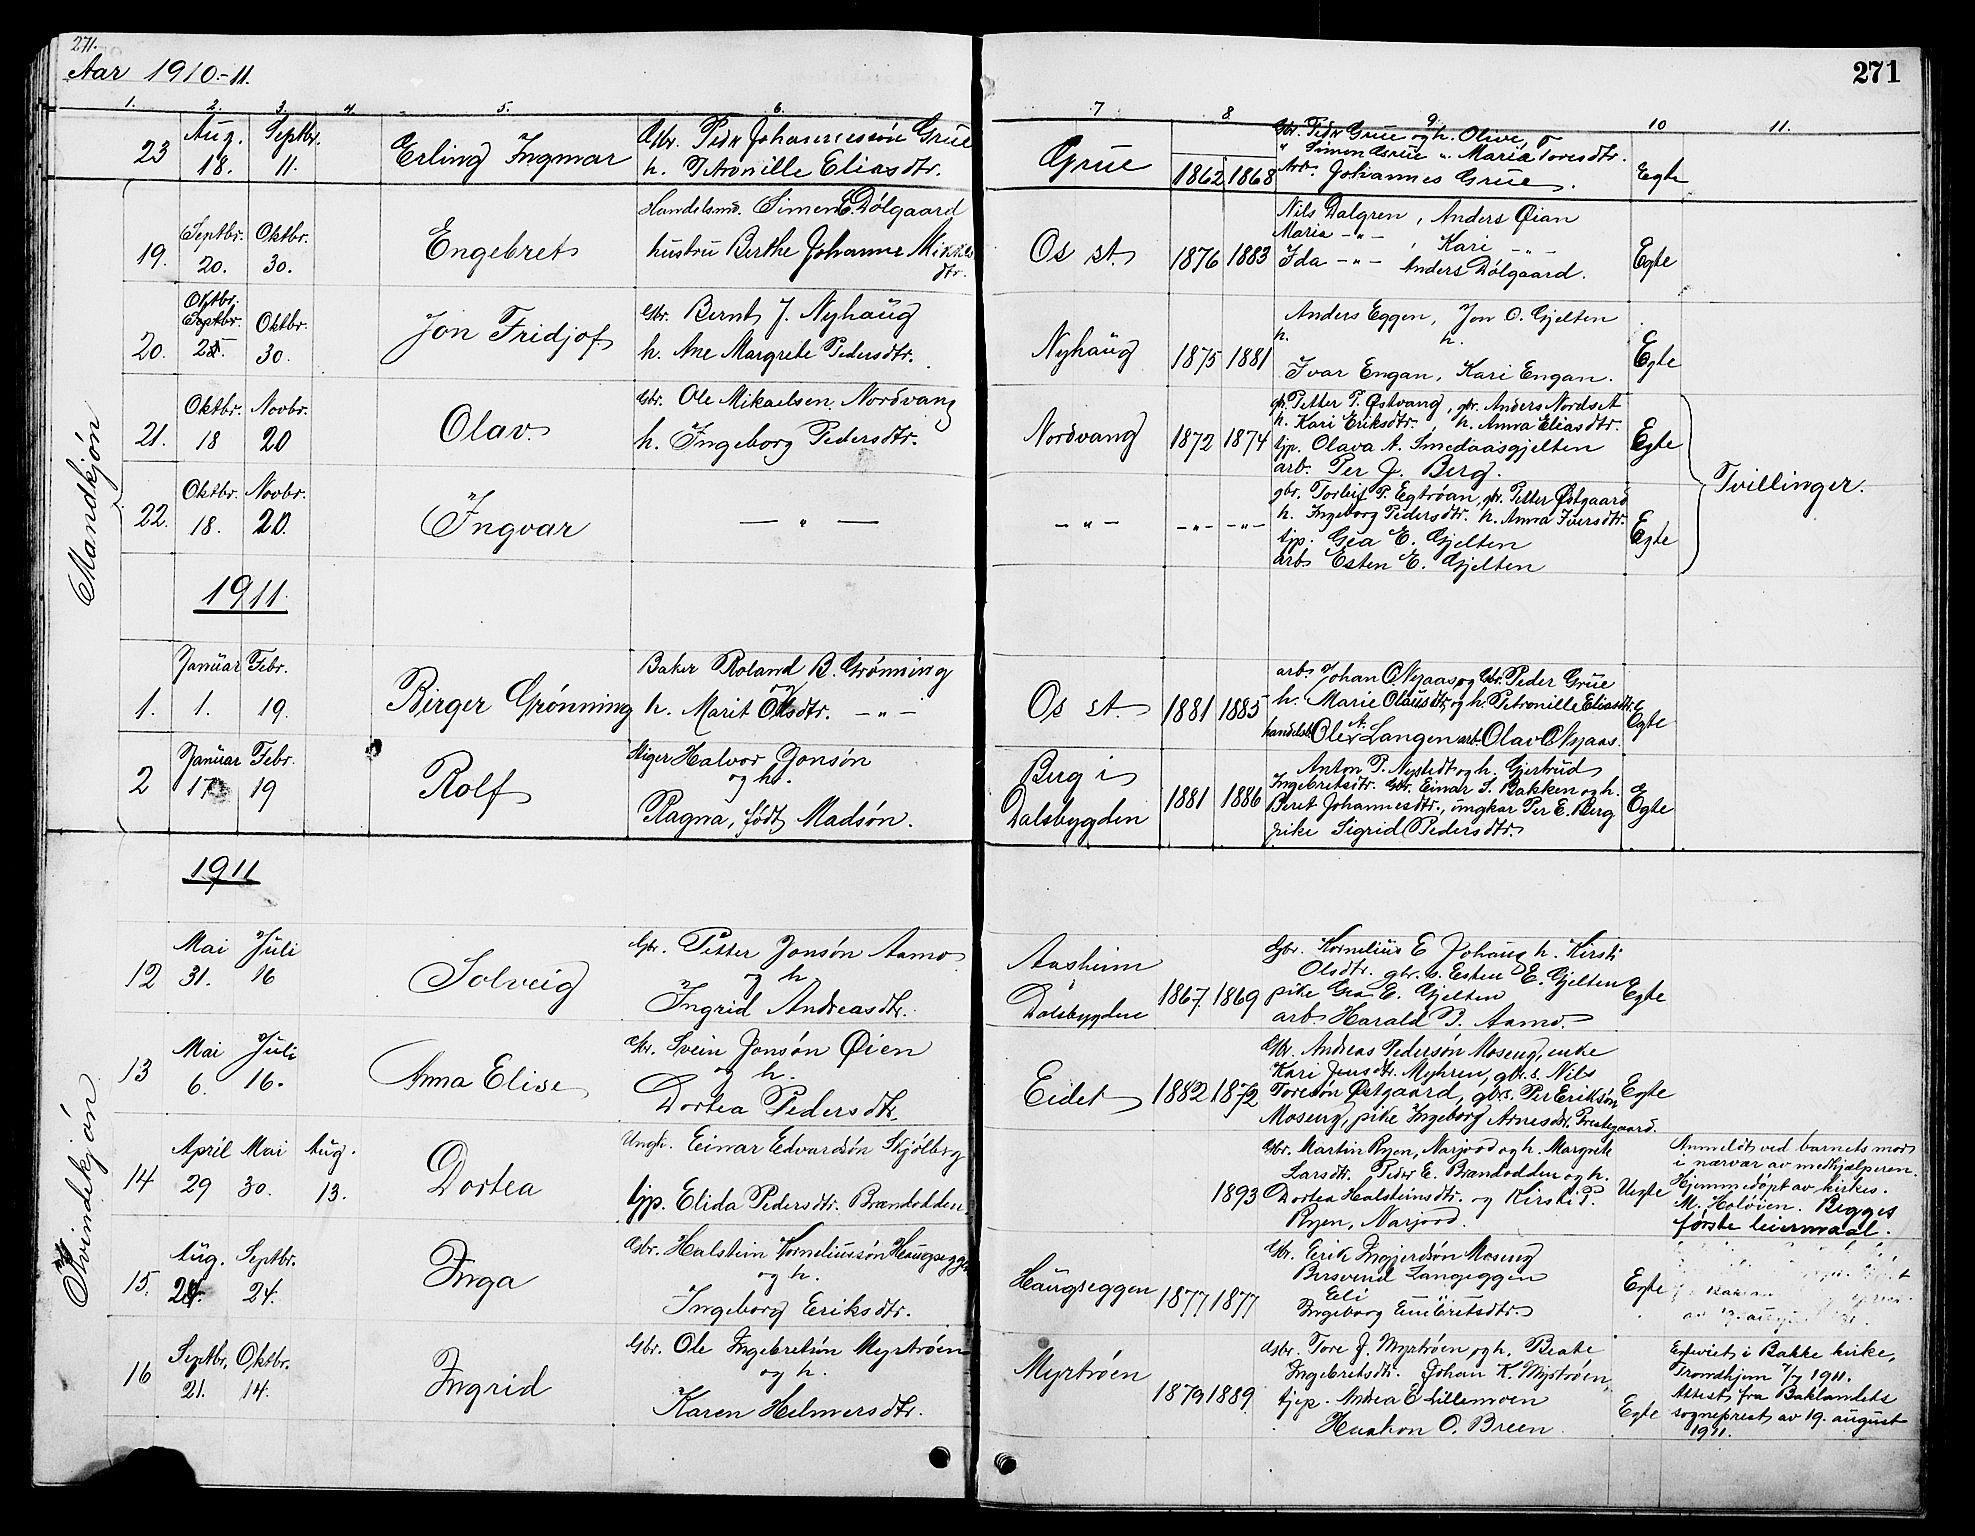 271.
Aar 1910-11.
271
1. 2. 3. 4. 5. 6. 7 8 9. 10 11.
Mandkjøn
23 Aug. 18. Septbr. 11.
Erling Ingmar
Gbr. Peder Johannessøn Grue
h. Petronille Eliasdtr.
Grue
1862 1868
Gbr. Peder Grue og h. Olive,
" Simon Grue " Maria Toresdtr.
Arb. Johannes Grue.
Egte
19. Septbr. 20. Oktbr. 30.
Engebret
Handelsmd. Simen E. Dølgaard
hustru Berthe Johanne Mikkels
dtr.
Os st.
1876 1883
Nils Dalgren, Anders Øian
Maria -"- , Kari -"-
Ida -"- Anders Dølgaard.
Egte
20. Oktbr. Septbr. 25. Oktbr. 30.
Jon Fridjof
Gbr. Bernt J. Nyhaug
h. Ane Margrete Pedersdtr.
Nyhaug
1875 1881
Anders Eggen, Jon O. Gjelten
h. h.
Ivar Engan, Kari Engan.
Egte
21. Oktbr. 18 Novbr. 20
Olav
Gbr. Ole Mikaelsen Nordvang
h. Ingeborg Pedersdtr.
Nordvang
1872 1874
gbr. Petter P. Østvang, gbr. Anders Nordset
h. Kari Eriksdtr. h. Anna Eliasdtr.
tjp. Olava A. Smedaasgjelten
arb. Per J. Berg.
Egte
Tvillinger.
22. Oktbr. 18. Novbr. 20.
Ingvar
— " —
-"- -"- -"-
gbr. Torleif P. Egtrøan, gbr. Petter Østgaard
h. Ingeborg Pedersdtr. h. Anna Iversdtr.
tjp. Gea E. Gjelten
arb. Esten E. Gjelten
Egte
1911.
1. Januar 1. Febr. 19.
Birger Grønning
Baker Roland B. Grønning
h. Marit Olsdtr. -"-
Os st.
1881 1885
arb. Johan O. Nyaas og Gbr. Peder Grue
h. Marie Olausdtr. og h. Petronille Eliasdtr.
handelsb. Ole A. Langen arb. Olav O. Nyaas.
Egte
2 Januar 17 Febr. 19
Rolf
Stiger Halvor Jonsøn
og h.
Ragna, født Madsøn.
Berg i
Dalsbygden
1881 1886
Anton P. Nystedt og h. Gjertrud
Ingebretsdtr. Gbr. Einar S. Bakken og h.
Beret Johannesdtr., ungkar Per E. Berg
pike Sigrid Pedersdtr.
Egte
1911
Kvindekjøn
12 Mai 31. Juli 16
Solveig
Gbr. Petter Jonsøn Aamo
og h.
Ingrid Andreasdtr.
Aasheim
Dalsbygden
1867 1869
Gbr. Kornelius E Johaug h. Kirsti
Olsdtr. gbr. s. Esten E. Gjelten
pike Gea E. Gjelten
arb. Harald J. Aamo.
Egte
13 Mai 6. Juli 16.
Anna Elise
Gbr. Svein Jonsøn Øien
og h.
Dortea Pedersdtr.
Eidet
1882 1872
Gbr. Andreas Pedersøn Moseng, enke
Kari Jensdtr. Myhren, gbr. s. Nils
Toresøn Østgaard, gbrs. Per Eriksøn
Moseng, pike Ingeborg Arnesdtr. Prestegaard.
Egte
14 April 29 Mai 30. Aug. 13.
Dortea
Ungk. Einar Edvardsøn Skjølberg
tjp. Elida Pedersdtr. Brændodden.
1893
Gbr. Martin Ryen, Narjord og h. Margrete
Larsdtr. Peder E. Brændodden og h.
Dortea Halsteinsdtr. og Kirsti P.
Ryen, Narjord.
Uegte
Anmeldt ved barnets mor
i nærvær av medhjælperen.
Hjemmedøpt av kirkes.
M. Holøien. Begges
første leiermaal.
15. Aug. 24. Septbr. 24.
Inga
Gbr. Halstein Korneliussøn Haugseggen
og h.
Ingeborg Eriksdtr.
Haugseggen
1877 1877
Gbr. Erik Ingjerdsøn Moseng
Bersvend Langeggen
Eli "
Ingeborg Eriksdtr.
Egte
16 Septbr. 21. Oktbr. 14.
Ingrid
Gbr. Ole Ingebretsøn Myrtrøen
og h.
Karen Helmersdtr.
Myrtrøen
1879 1889
Gbr. Tore J. Myrtrøen og h. Beate
Ingebretsdtr. Johan K. Myrtrøen,
tjep. Andrea E Lillemoen
Haakon O. Breen
Egte
Egteviet i Bakke kirke,
Trondhjem 7/7 1911.
Attest fra Baklandets
sogneprest av 19. august
1911.